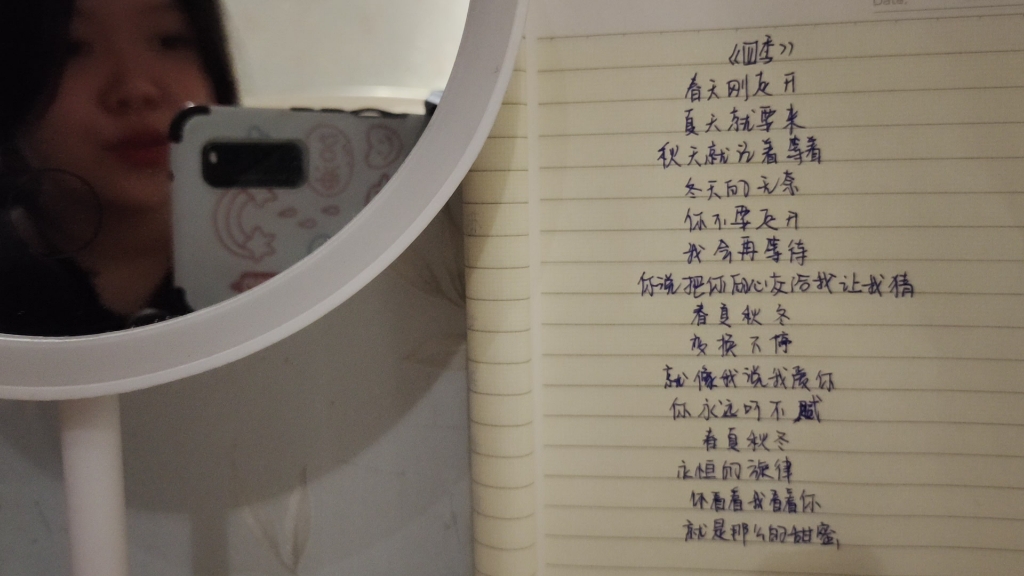 Date:
《四季》
春天刚走开
夏天就要来
秋天就沿着等着
冬天的无奈
你不要走开
我会再等待
你说把你的心交给我让我猜
春夏秋冬
变换不停
就像我说我爱你
你永远听不腻
春夏秋冬
永恒的旋律
你看着我看着你
就是那么的甜蜜